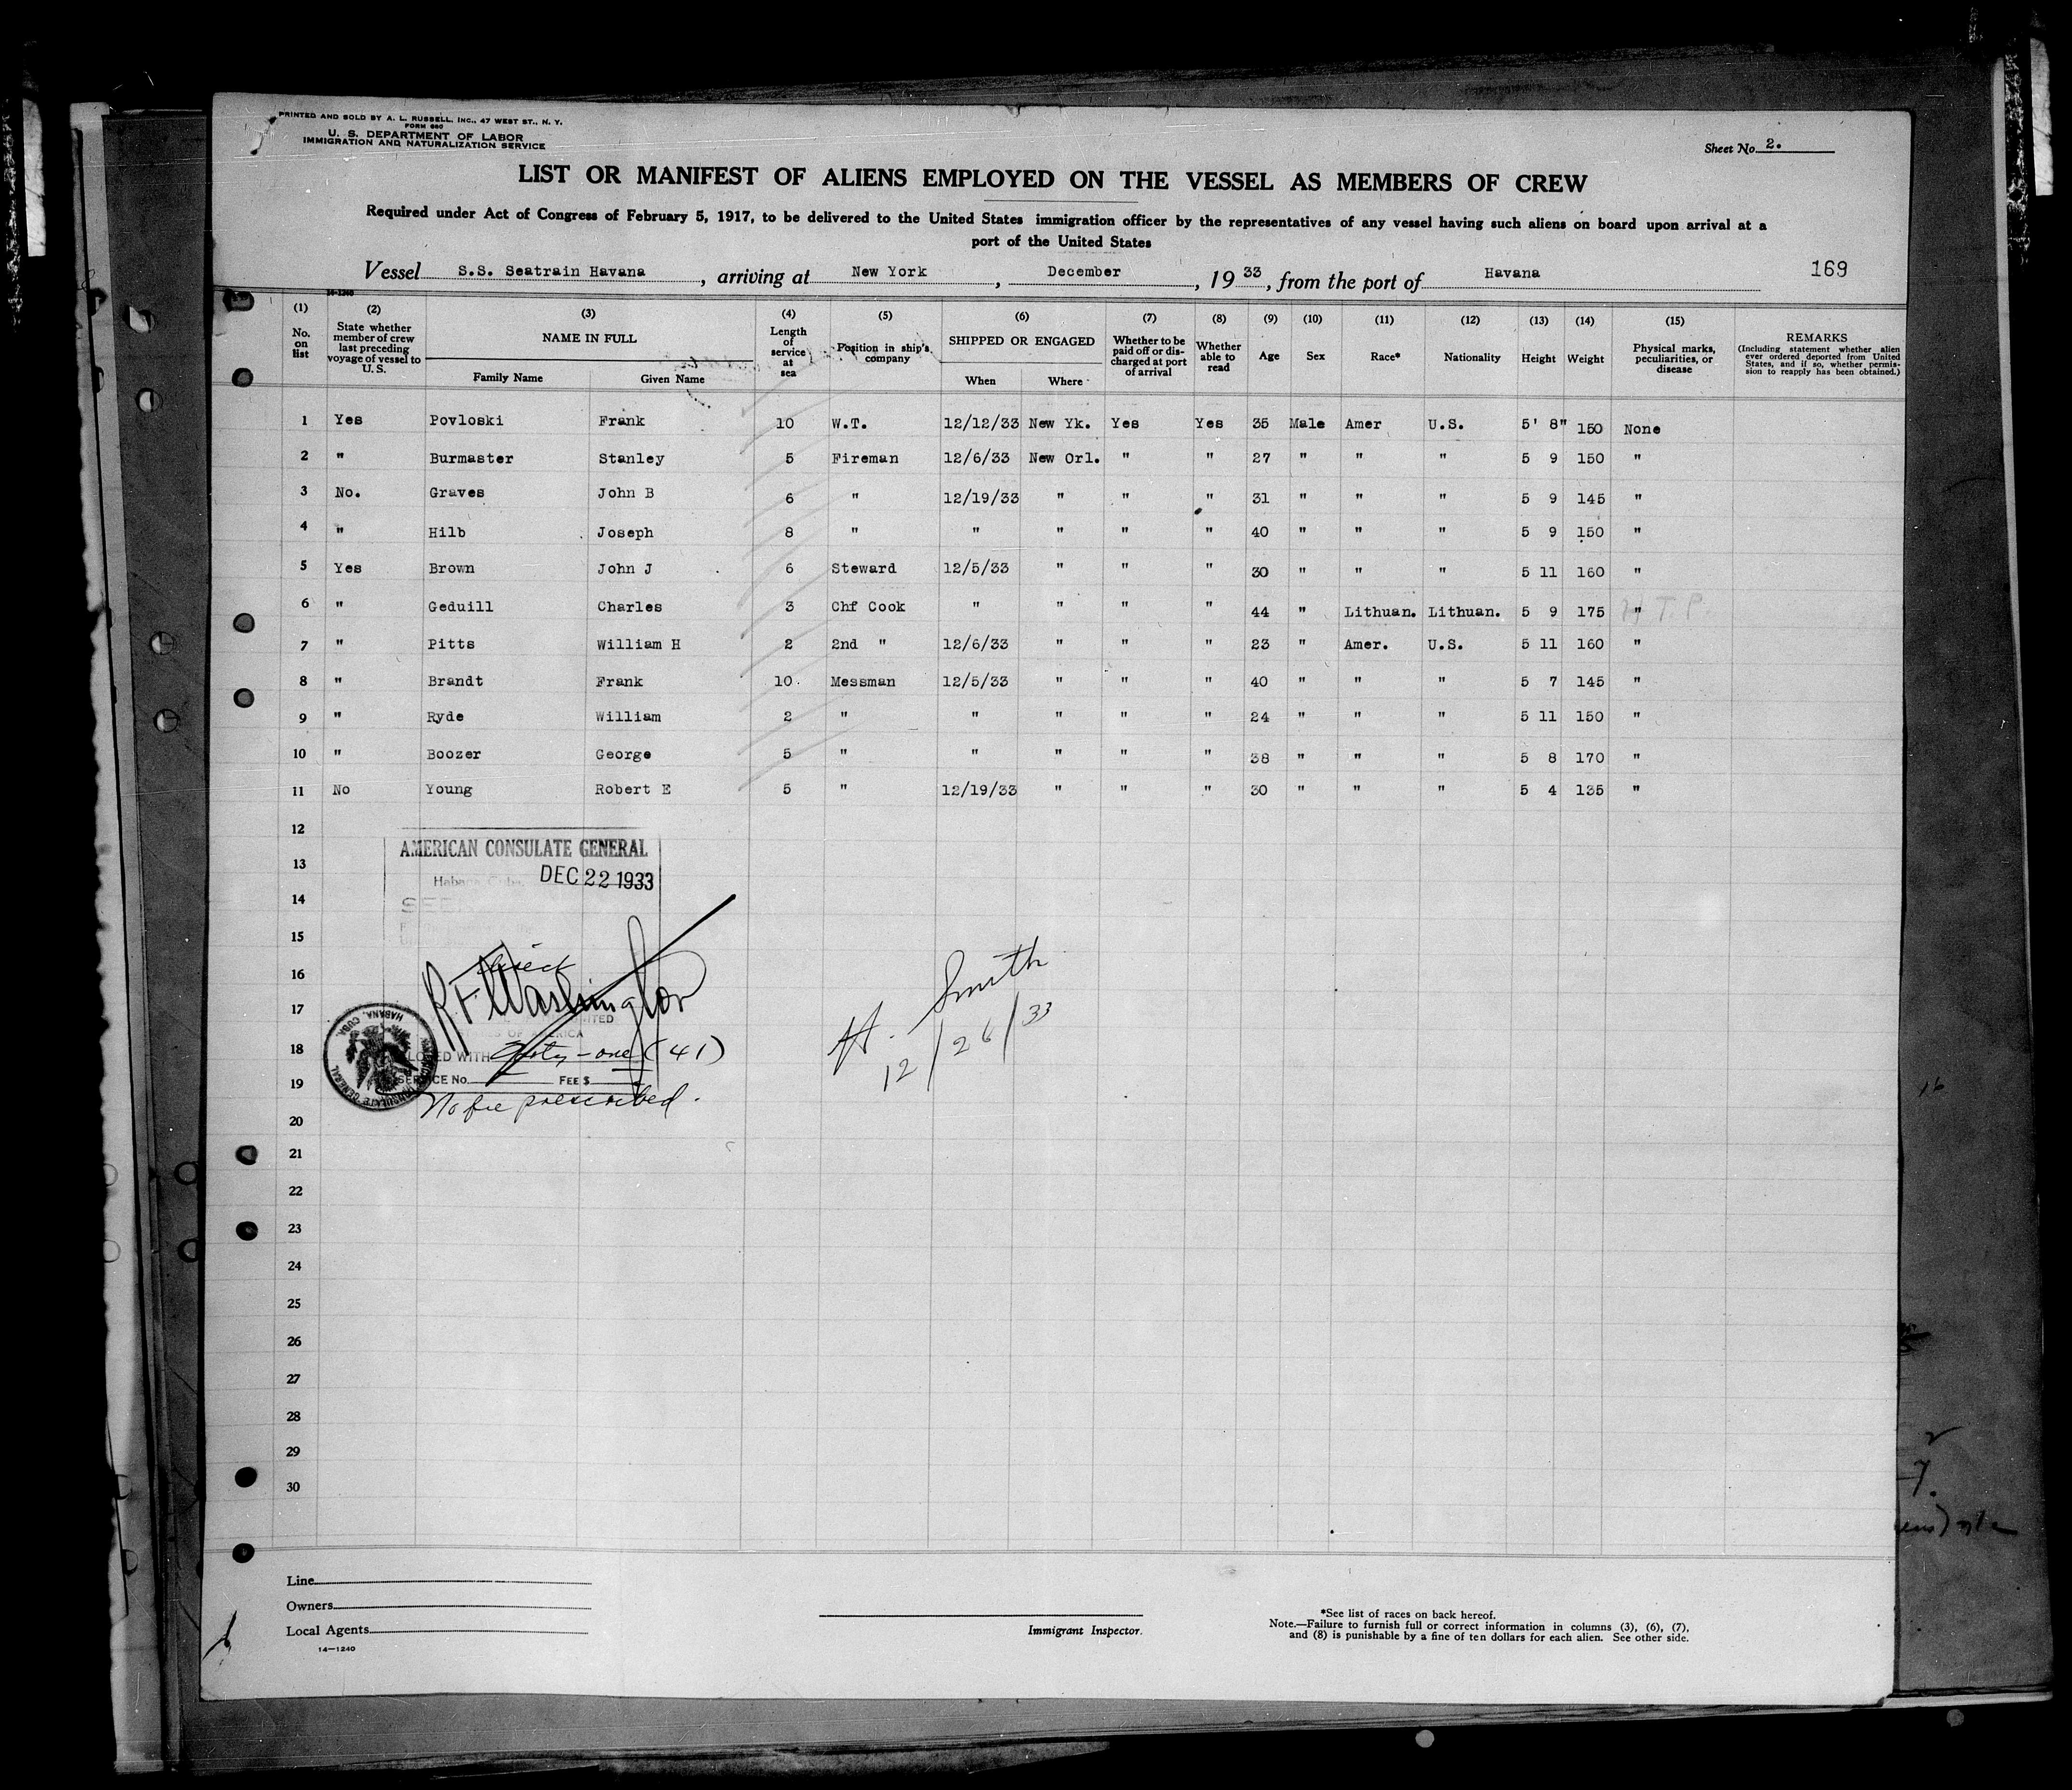 PRINTED AND SOLD BY A. L. RUSSELL, INC., 47 WEST ST., N. Y.
FORM 680
U. S. DEPARTMENT OF LABOR
IMMIGRATION AND NATURALIZATION SERVICE
Sheet No. 2.
LIST OR MANIFEST OF ALIENS EMPLOYED ON THE VESSEL AS MEMBERS OF CREW
Required under Act of Congress of February 5, 1917, to be delivered to the United States immigration officer by the representatives of any vessel having such aliens on board upon arrival at a
port of the United States
Vessel S.S. Seatrain Havana, arriving at New York, December, 19 33, from the port of Havana 169
14-1240
(1) (2) (3) (4) (5) (6) (7) (8) (9) (10) (11) (12) (13) (14) (15)
No. on list State whether member of crew last preceding voyage of vessel to U. S. NAME IN FULL Family Name Given Name Length of service at sea Position in ship's company SHIPPED OR ENGAGED When Where Whether to be paid off or discharged at port of arrival Whether able to read Age Sex Race* Nationality Height Weight Physical marks, peculiarities, or disease REMARKS (Including statement whether alien ever ordered deported from United States, and if so, whether permission to reapply has been obtained.)
1 Yes Povloski Frank 10 W.T. 12/12/33 New Yk. Yes Yes 35 Male Amer U.S. 5' 8" 150 None
2 " Burmaster Stanley 5 Fireman 12/6/33 New Orl. " " 27 " " " 5 9 150 "
3 No. Graves John B 6 " 12/19/33 " " " 31 " " " 5 9 145 "
4 " Hilb Joseph 8 " " " " " 40 " " " 5 9 150 "
5 Yes Brown John J 6 Steward 12/5/33 " " " 30 " " " 5 11 160 "
6 " Geduill Charles 3 Chf Cook " " " " 44 " Lithuan. Lithuan. 5 9 175 "
7 " Pitts William H 2 2nd " 12/6/33 " " " 23 " Amer. U.S. 5 11 160 "
8 " Brandt Frank 10. Messman 12/5/33 " " " 40 " " " 5 7 145 "
9 " Ryde William 2 " " " " " 24 " " " 5 11 150 "
10 " Boozer George 5 " " " " " 38 " " " 5 8 170 "
11 No Young Robert E 5 " 12/19/33 " " " 30 " " " 5 4 135 "
12
AMERICAN CONSULATE GENERAL
13
DEC 22 1933
14
15
16
direct
R F Washington
H. Smith
17
12/26/33
OF AMERICA
18
WITH forty-one (41)
19
SERVICE No. FEE $
No fee prescribed.
HABANA, CUBA.
CONSULATE GENERAL
20
21
22
23
24
25
26
27
28
29
30
Line
Owners
Local Agents
14—1240
Immigrant Inspector.
*See list of races on back hereof.
Note.—Failure to furnish full or correct information in columns (3), (6), (7),
and (8) is punishable by a fine of ten dollars for each alien. See other side.